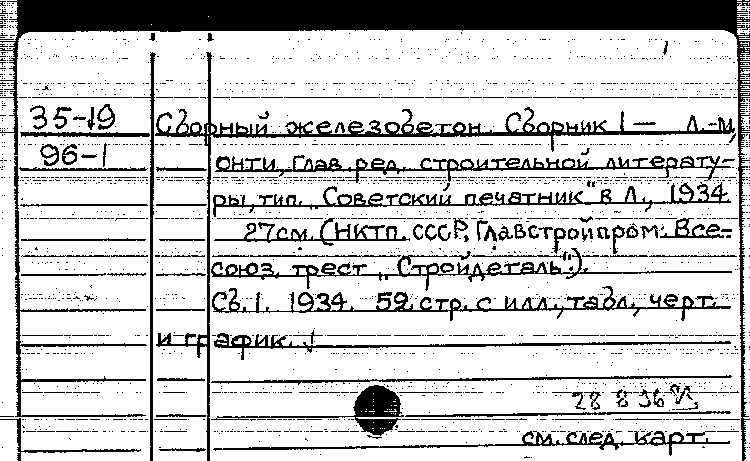 35-19 Сборный железобетон. Сборник 1 — Л.-М,
96-1 ОНТИ, Глав. ред. строительной литерату-
ры, тип. „Советский печатник" в Л., 1934
27см. (НКТП. СССР, Главстройпром. Все-
союз. трест „Стройдеталь".).
Сб. 1. 1934. 59 стр. с илл., табл., черт.
и график.
см. след. карт.